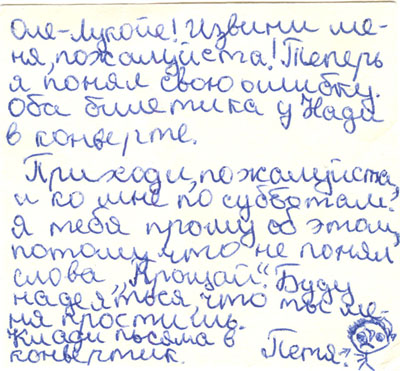 Оле-Лукойе! Извини ме-
ня, пожалуйста! Теперь
я понял свою ошибку.
Оба билетика у Нади
в конверте.
Приходи, пожалуйста,
и ко мне по субботам.
Я тебя прошу об этом,
потому что не понял
слова „Прощай“. Буду
надеяться, что ты ме-
ня простишь.
Клади письма в
конвертик. Петя.